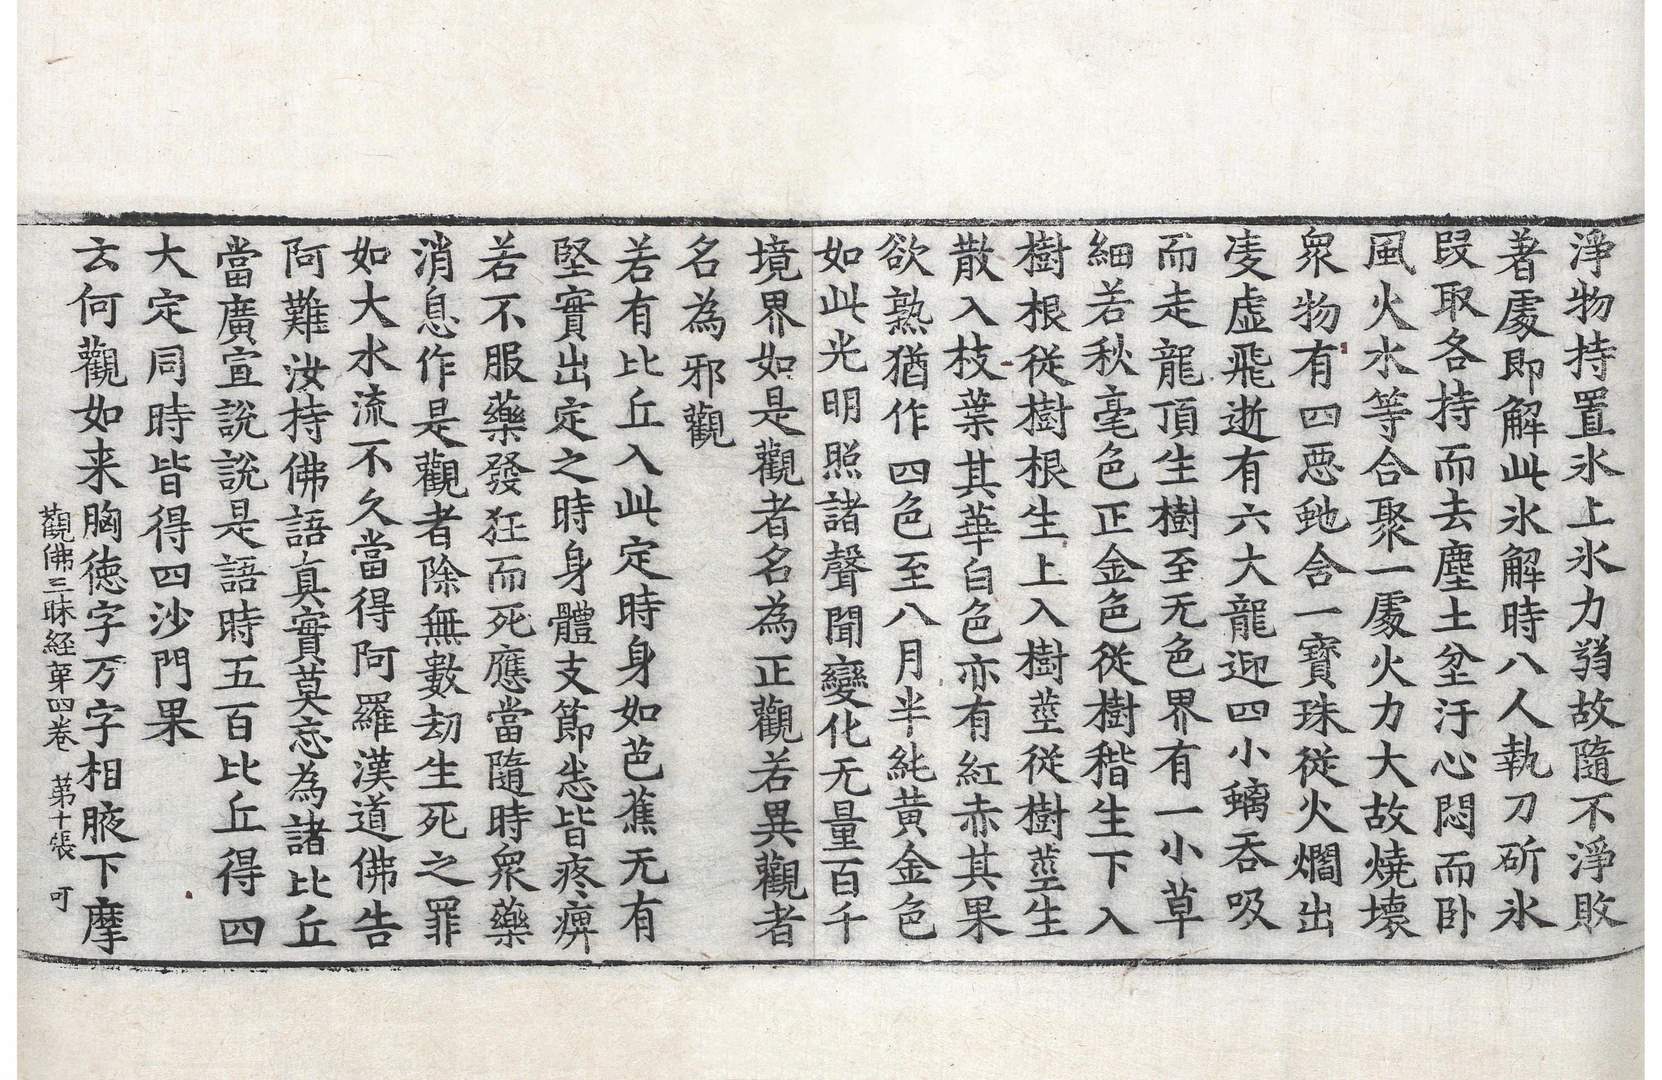 淨物持置氷上氷力弱故隨不淨敗
著處即解此氷解時八人執刀斫氷
段取各持而去塵土坌汙心悶而卧
風火水等合聚一處火力大故燒壞
衆物有四惡虵含一寶珠從火爓出
凌虛飛逝有六大龍迎四小螭吞吸
而走龍頂生樹至无色界有一小草
細若秋毫色正金色從樹稭生下入
樹根從樹根生上入樹莖從樹莖生
散入枝葉其華白色亦有紅赤其果
欲熟猶作四色至八月半純黃金色
如此光明照諸聲聞變化无量百千
境界如是觀者名為正觀若異觀者
名為邪觀
若有比丘入此定時身如芭蕉无有
堅實出定之時身體支節悉皆疼痹
若不服藥發狂而死應當隨時衆藥
消息作是觀者除無數劫生死之罪
如大水流不久當得阿羅漢道佛告
阿難汝持佛語真實莫忘為諸比丘
當廣宣說說是語時五百比丘得四
大定同時皆得四沙門果
云何觀如来胸德字万字相腋下摩
觀佛三昧経苐四卷 第十張 可